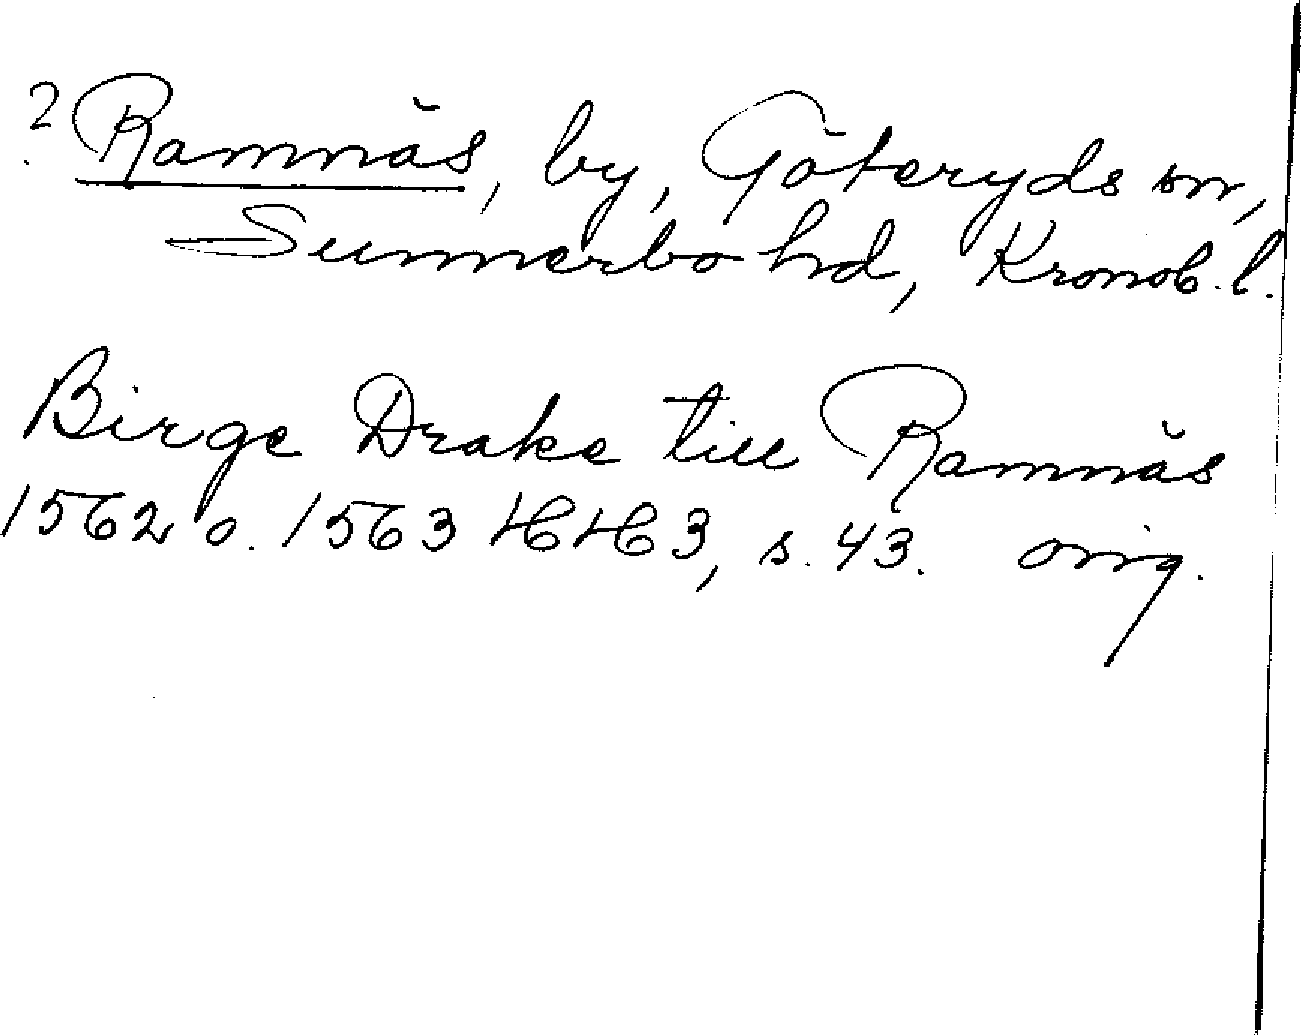 ? Ramnäs, by, Göteryds sn,
Sunnerbo hd, Kronob. l.
Birge Drake till Ramnäs
1562 o. 1563 HH 3, s. 43. orig.